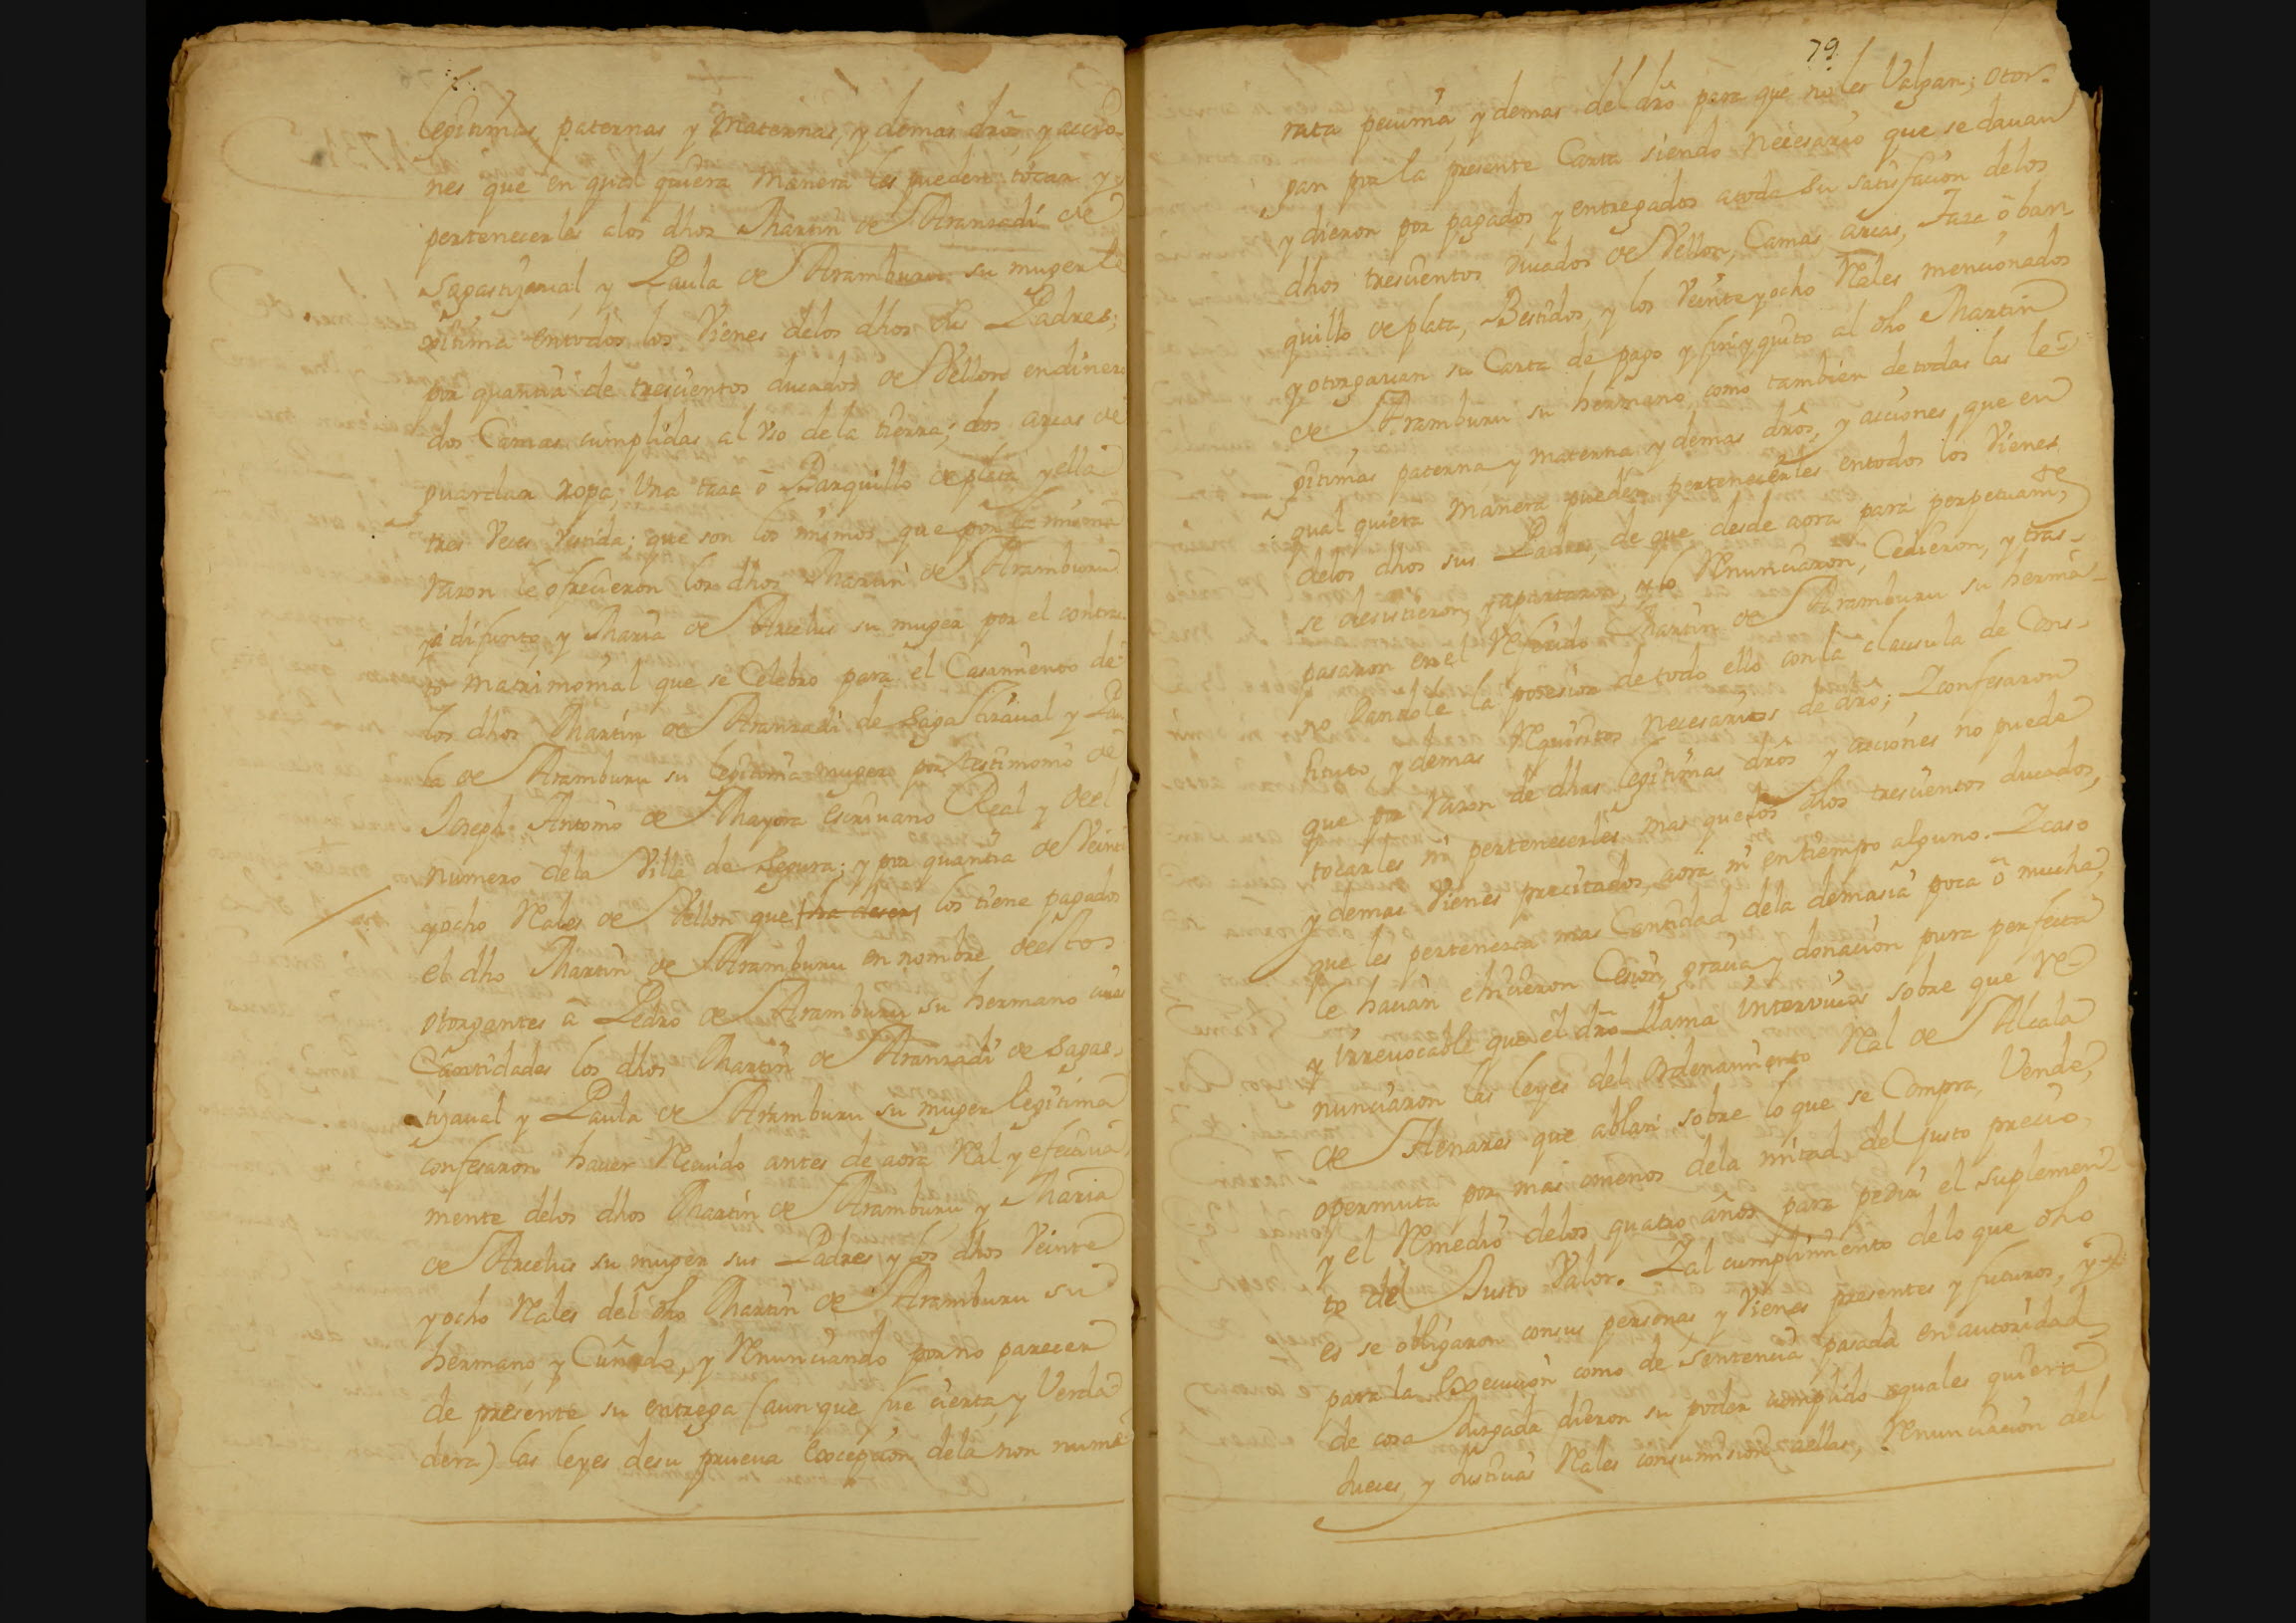 legitimas paternas y Maternas, y demas dros, y accio-
nes que en qual quiera manera les pueden tocar y
pertenecerles alos dhos Martin de Aranzadi de
Sagastizaval y Paula de Aramburu su muger le
gitima entodos los Vienes delos dhos sus Padres;
por quantia de trescientos ducados de Vellon en dinero
dos Camas cumplidas al Vso dela tierra; dos arcas de
guardar ropa; Una taza ô Barquillo de plata yella
tres Veces Vestida; que son los mismos que por la misma
razon le ofrecieron los dhos Martin de Aramburu
ya difunto, y Maria de Arcelus su muger por el contra
to matrimonial que se Celebro para el Casamiento de
los dhos Martin de Aranzadi de Sagastizaval y Pau
la de Aramburu su legitima muger por testimonio de
Joseph Antonio de Mayora escrivano Real y del
numero dela Villa de Segura; y por quantia de Veinte
yocho Rales de Vellon que ha deser los tiene pagados
el dho Martin de Aramburu en nombre destos
otorgantes â Pedro de Aramburu su hermano cuias
Cantidades los dhos Martin de Aranzadi de Sagas-
tizaval y Paula de Aramburu su muger legitima
confesaron haver Recivido antes de aora Ral y efectiva
mente delos dhos Martin de Aramburu y Maria
de Arcelus su muger sus Padres y los dhos Veinte
yocho Rales del dho Martin de Aramburu su
hermano y Cuñado, y Renunciando por no parecer
de presente su entrega (aunque fue cierta y Verda
dera) las leyes desu prueva Excepcion dela non nume
79
rata pecunia y demas del dro para que no les Valgan; otor-
gan por la presente Carta siendo necesario que se davan
y dieron por pagados y entregados atoda su satisfacion delos
dhos trescientos ducados de Vellon, Camas arcas, Taza ô bar
quillo de plata, Bestidos, y los Veinte yocho Rales mencionados
y otorgavan su Carta de pago y finiquito al dho Martin
de Aramburu su hermano como tambien de todas las le-
gitimas paterna y materna y demas dros, y acciones que en
qual quiera manera pueden pertenecerles entodos los Vienes
delos dhos sus Padres, de que desde aora para perpetuamte
se desistieron, y apartaron, y lo Renunciaron, Cedieron, y tras-
pasaron en el Referido Martin de Aramburu su herma-
no dandole la posesion de todo ello con la clausula de Cons-
tituto, y demas Requisitos necesarios de dro; Y confesaron
que por razon de dhas legitimas dros y acciones no puede
tocarles ni pertenecerles mas que los dhos trescientos ducados,
y demas Vienes precitados, aora ni en tiempo alguno. Y caso
que les pertenezca mas Cantidad dela demasia poca ô mucha,
le hacian e hicieron Cesion, gracia y donacion pura perfecta
y irrevocable que el dro Llama intervivos sobre que Re-
nunciaron las leyes del Ordenamiento Ral de Alcala
de Henares que ablan sobre lo que se Compra, Vende,
o permuta por mas o menos dela mitad del justo precio,
y el Remedio delos quatro años para pedir el suplemen-
to del Justo Valor. Y al cumplimiento delo que dho
es se obligaron consus personas y Vienes presentes y futuros, y
para la Execucion como de sentencia pasada en autoridad
de cosa Juzgada dieron su poder cumplido aquales quiera
Jueces y Justicias Rales consumision aellas, Renunciacion del